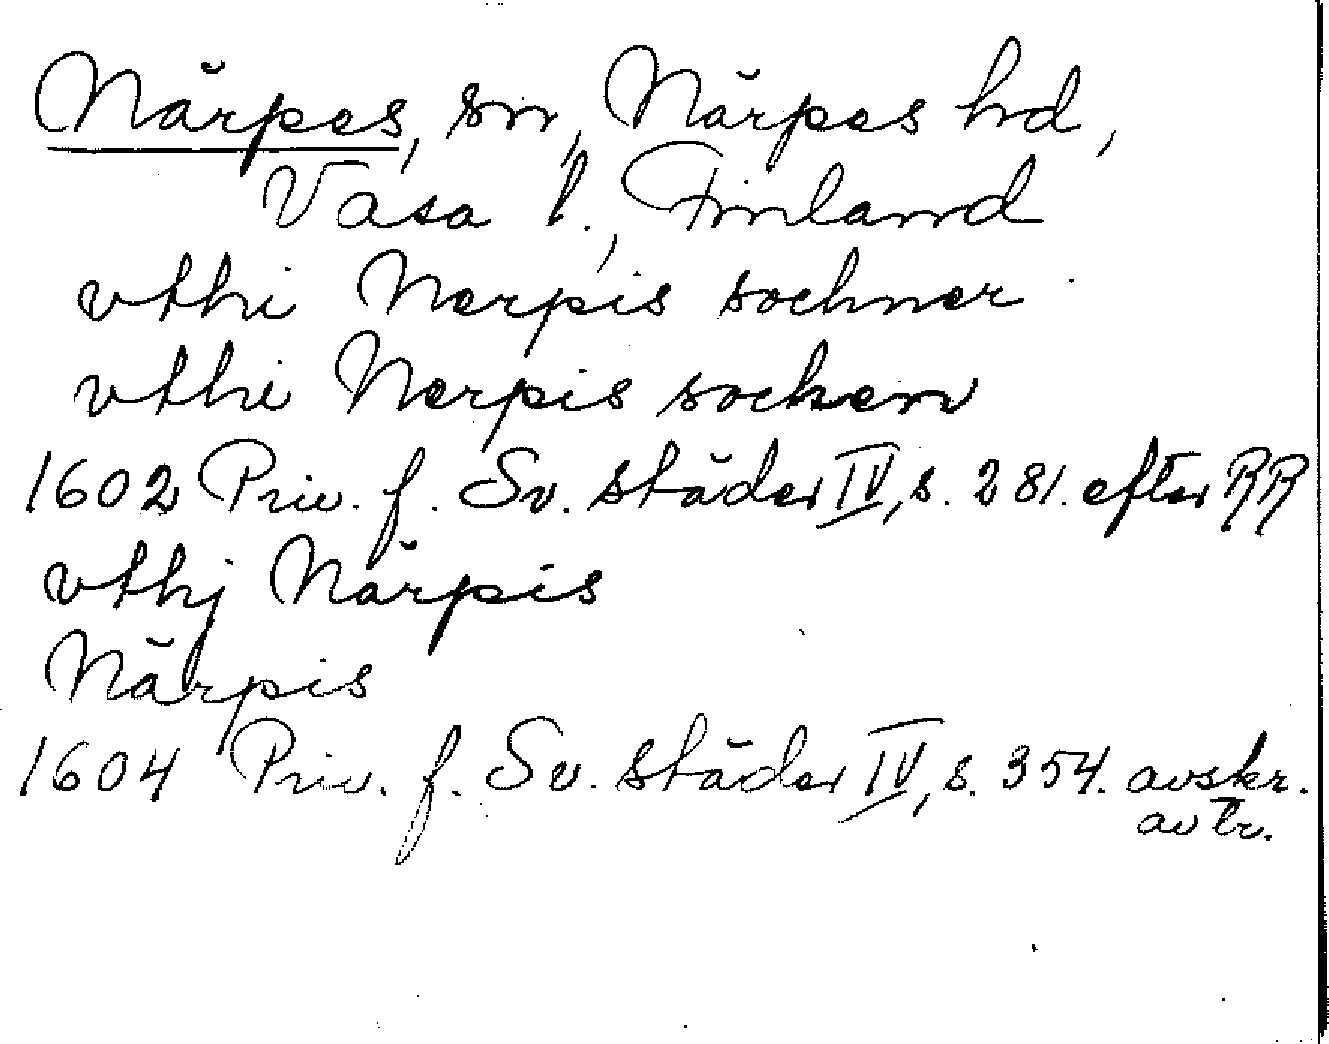 Närpes, sn, Närpes hd,
Vasa l., Finland
vthi Nerpis sochner
vthi Nerpis socken
1602 Priv. f. Sv. städer IV, s. 281. efter RR
vthj Närpis
Närpis
1604 Priv. f. Sv. städer IV, s. 354. avskr.
av tr.